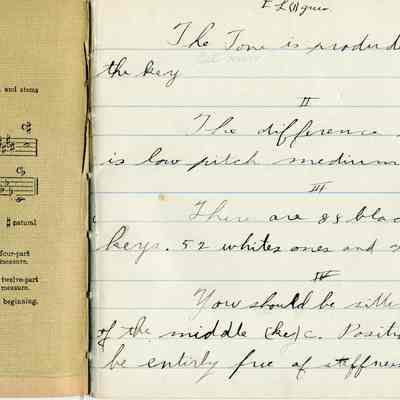 and stems
C#
C♭
# natural
four-part
measure.
twelve-part
measure.
beginning.
The Tone is produ
the key
II
The difference
is low pitch medium
III
There are 88 blac
keys. 52 whites ones and
IV
You should be sitt
of the middle (key) c. Positi
be entirly free of stiffness